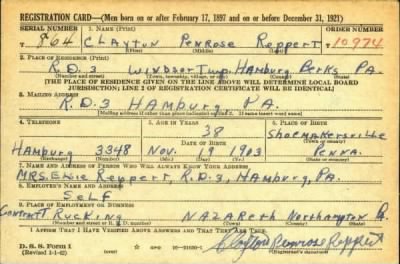 REGISTRATION CARD—(Men born on or after February 17, 1897 and on or before December 31, 1921)
SERIAL NUMBER 1. NAME (Print) ORDER NUMBER
T 864 CLAYTON PENROSE REPPERT 10974
(First) (Middle) (Last)
2. PLACE OF RESIDENCE (Print)
R.D.3 WINDSOR TWP. HAMBURG BERKS PA.
(Number and street) (Town, township, village, or city) (County) (State)
[THE PLACE OF RESIDENCE GIVEN ON THE LINE ABOVE WILL DETERMINE LOCAL BOARD
JURISDICTION; LINE 2 OF REGISTRATION CERTIFICATE WILL BE IDENTICAL]
3. MAILING ADDRESS
R.D.3 HAMBURG PA.
[Mailing address if other than place indicated on line 2. If same insert word same]
4. TELEPHONE 5. AGE IN YEARS 6. PLACE OF BIRTH
38 SHOEMAKERSVILLE
DATE OF BIRTH (Town or county)
HAMBURG 3348 NOV. 19 1903 PENNA.
(Exchange) (Number) (Mo.) (Day) (Yr.) (State or country)
7. NAME AND ADDRESS OF PERSON WHO WILL ALWAYS KNOW YOUR ADDRESS
MRS. ELSIE REPPERT R.D.3, HAMBURG, PA.
8. EMPLOYER'S NAME AND ADDRESS
SELF
9. PLACE OF EMPLOYMENT OR BUSINESS
CONTRACT TRUCKING NAZARETH NORTHAMPTON PA.
(Number and street or R. F. D. number) (Town) (County) (State)
I AFFIRM THAT I HAVE VERIFIED ABOVE ANSWERS AND THAT THEY ARE TRUE.
D. S. S. Form 1 GPO 16—21630-1 Clayton Penrose Reppert
(Revised 1-1-42) (over) (Registrant's signature)